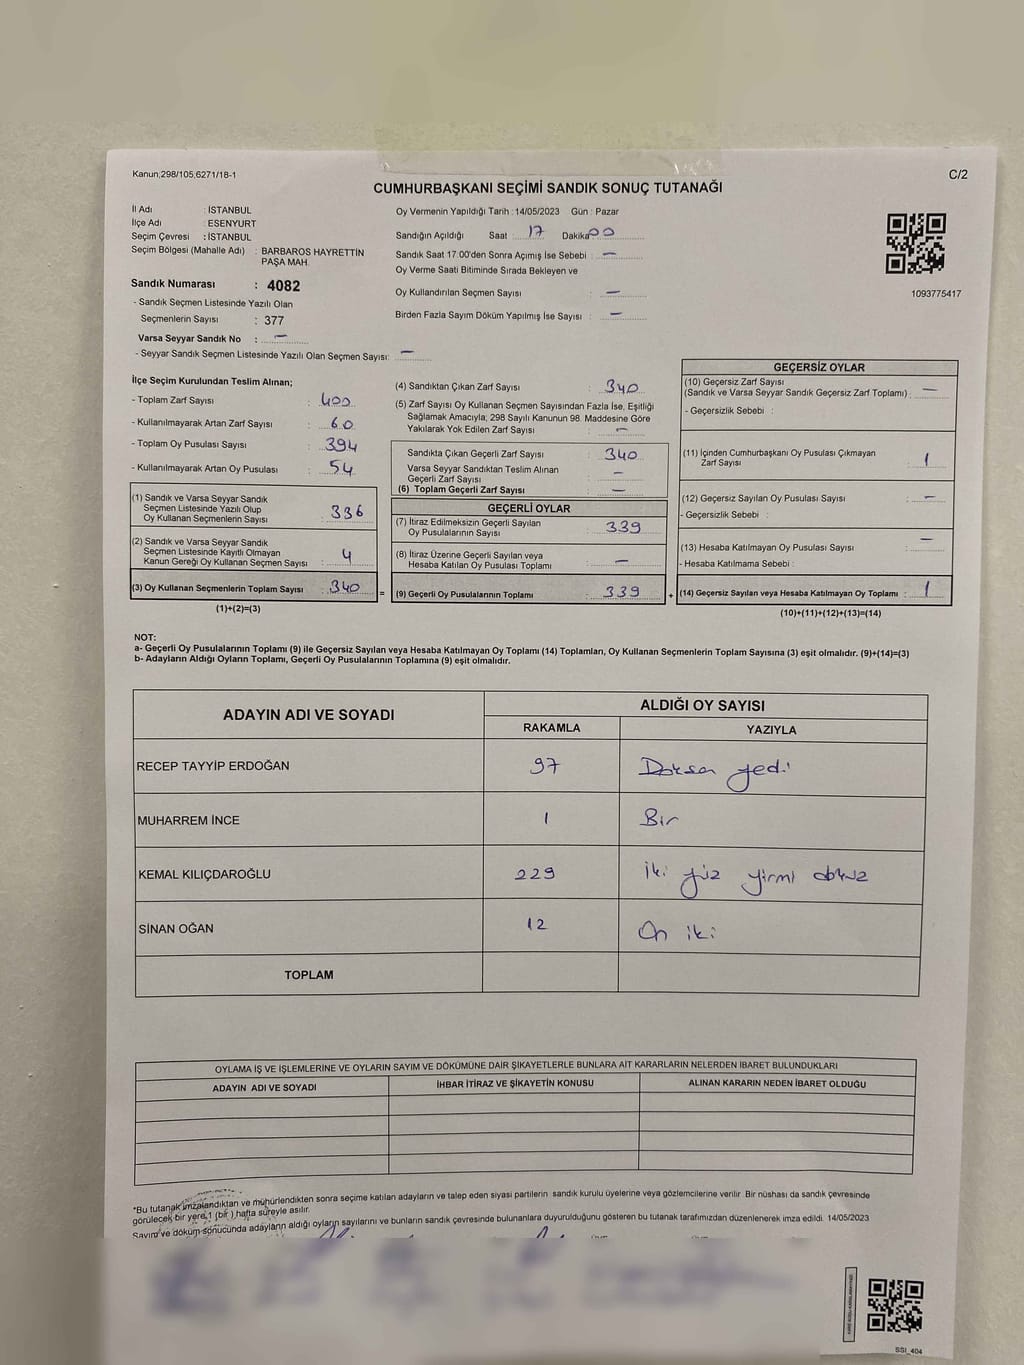 Kanun;298/105,6271/18-1
C/2
CUMHURBAŞKANI SEÇİMİ SANDIK SONUÇ TUTANAĞI
İl Adı : İSTANBUL
İlçe Adı : ESENYURT
Seçim Çevresi : İSTANBUL
Seçim Bölgesi (Mahalle Adı) : BARBAROS HAYRETTİN
PAŞA MAH.
Sandık Numarası : 4082
- Sandık Seçmen Listesinde Yazılı Olan
Seçmenlerin Sayısı : 377
Varsa Seyyar Sandık No : —
- Seyyar Sandık Seçmen Listesinde Yazılı Olan Seçmen Sayısı: —
Oy Vermenin Yapıldığı Tarih : 14/05/2023 Gün : Pazar
Sandığın Açıldığı Saat 17 Dakika 00
Sandık Saat 17:00'den Sonra Açılmış İse Sebebi : —
Oy Verme Saati Bitiminde Sırada Bekleyen ve
Oy Kullandırılan Seçmen Sayısı : —
Birden Fazla Sayım Döküm Yapılmış İse Sayısı : —
1093775417
İlçe Seçim Kurulundan Teslim Alınan;
- Toplam Zarf Sayısı : 400
- Kullanılmayarak Artan Zarf Sayısı : 60
- Toplam Oy Pusulası Sayısı : 394
- Kullanılmayarak Artan Oy Pusulası : 54
(1) Sandık ve Varsa Seyyar Sandık
Seçmen Listesinde Yazılı Olup
Oy Kullanan Seçmenlerin Sayısı : 336
(2) Sandık ve Varsa Seyyar Sandık
Seçmen Listesinde Kayıtlı Olmayan
Kanun Gereği Oy Kullanan Seçmen Sayısı : 4
(3) Oy Kullanan Seçmenlerin Toplam Sayısı : 340
(1)+(2)=(3)
=
(4) Sandıktan Çıkan Zarf Sayısı : 340
(5) Zarf Sayısı Oy Kullanan Seçmen Sayısından Fazla İse, Eşitliği
Sağlamak Amacıyla; 298 Sayılı Kanunun 98. Maddesine Göre
Yakılarak Yok Edilen Zarf Sayısı : —
Sandıkta Çıkan Geçerli Zarf Sayısı : 340
Varsa Seyyar Sandıktan Teslim Alınan
Geçerli Zarf Sayısı : —
(6) Toplam Geçerli Zarf Sayısı : —
GEÇERLİ OYLAR
(7) İtiraz Edilmeksizin Geçerli Sayılan
Oy Pusulalarının Sayısı : 339
(8) İtiraz Üzerine Geçerli Sayılan veya
Hesaba Katılan Oy Pusulası Toplamı : —
(9) Geçerli Oy Pusulalarının Toplamı : 339
+
GEÇERSİZ OYLAR
(10) Geçersiz Zarf Sayısı
(Sandık ve Varsa Seyyar Sandık Geçersiz Zarf Toplamı) : —
- Geçersizlik Sebebi :
(11) İçinden Cumhurbaşkanı Oy Pusulası Çıkmayan
Zarf Sayısı : 1
(12) Geçersiz Sayılan Oy Pusulası Sayısı : —
- Geçersizlik Sebebi :
(13) Hesaba Katılmayan Oy Pusulası Sayısı : —
- Hesaba Katılmama Sebebi :
(14) Geçersiz Sayılan veya Hesaba Katılmayan Oy Toplamı : 1
(10)+(11)+(12)+(13)=(14)
NOT:
a- Geçerli Oy Pusulalarının Toplamı (9) ile Geçersiz Sayılan veya Hesaba Katılmayan Oy Toplamı (14) Toplamları, Oy Kullanan Seçmenlerin Toplam Sayısına (3) eşit olmalıdır. (9)+(14)=(3)
b- Adayların Aldığı Oyların Toplamı, Geçerli Oy Pusulalarının Toplamına (9) eşit olmalıdır.
ADAYIN ADI VE SOYADI
ALDIĞI OY SAYISI
RAKAMLA YAZIYLA
RECEP TAYYİP ERDOĞAN 97 Doksan yedi
MUHARREM İNCE 1 Bir
KEMAL KILIÇDAROĞLU 229 iki yüz yirmi dokuz
SİNAN OĞAN 12 On iki
TOPLAM
OYLAMA İŞ VE İŞLEMLERİNE VE OYLARIN SAYIM VE DÖKÜMÜNE DAİR ŞİKAYETLERLE BUNLARA AİT KARARLARIN NELERDEN İBARET BULUNDUKLARI
ADAYIN ADI VE SOYADI İHBAR İTİRAZ VE ŞİKAYETİN KONUSU ALINAN KARARIN NEDEN İBARET OLDUĞU
*Bu tutanak imzalandıktan ve mühürlendikten sonra seçime katılan adayların ve talep eden siyasi partilerin sandık kurulu üyelerine veya gözlemcilerine verilir. Bir nüshası da sandık çevresinde
görülecek bir yere 1 (bir ) hafta süreyle asılır.
Sayım ve döküm sonucunda adayların aldığı oyların sayılarını ve bunların sandık çevresinde bulunanlara duyurulduğunu gösteren bu tutanak tarafımızdan düzenlenerek imza edildi. 14/05/2023
SSI_404